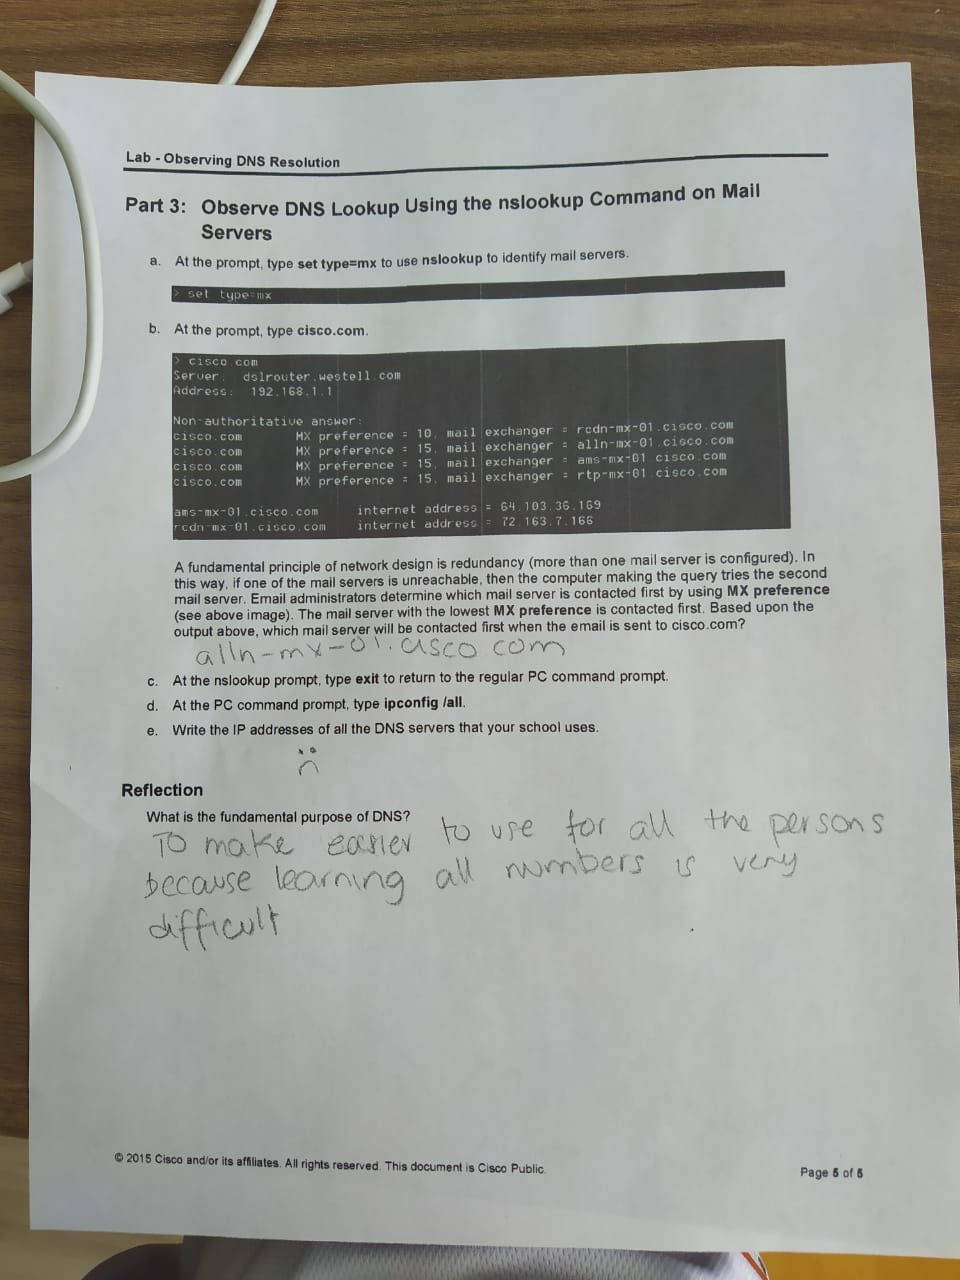 Lab - Observing DNS Resolution
Part 3: Observe DNS Lookup Using the nslookup Command on Mail
Servers
a. At the prompt, type set type=mx to use nslookup to identify mail servers.
> set type=mx
b. At the prompt, type cisco.com.
> cisco com
Server: dslrouter.westell.com
Address: 192.168.1.1
Non-authoritative answer:
cisco.com MX preference = 10, mail exchanger = rcdn-mx-01.cisco.com
cisco.com MX preference = 15, mail exchanger = alln-mx-01.cisco.com
cisco.com MX preference = 15, mail exchanger = ams-mx-01 cisco.com
cisco.com MX preference = 15, mail exchanger = rtp-mx-01 cisco.com
ams-mx-01.cisco.com internet address = 64.103.36.169
rcdn-mx-01.cisco.com internet address = 72.163.7.166
A fundamental principle of network design is redundancy (more than one mail server is configured). In
this way, if one of the mail servers is unreachable, then the computer making the query tries the second
mail server. Email administrators determine which mail server is contacted first by using MX preference
(see above image). The mail server with the lowest MX preference is contacted first. Based upon the
output above, which mail server will be contacted first when the email is sent to cisco.com?
alln-mx-01.cisco com
c. At the nslookup prompt, type exit to return to the regular PC command prompt.
d. At the PC command prompt, type ipconfig /all.
e. Write the IP addresses of all the DNS servers that your school uses.
Reflection
What is the fundamental purpose of DNS?
To make easier to use for all the persons
because learning all numbers is very
difficult
© 2015 Cisco and/or its affiliates. All rights reserved. This document is Cisco Public.
Page 5 of 5